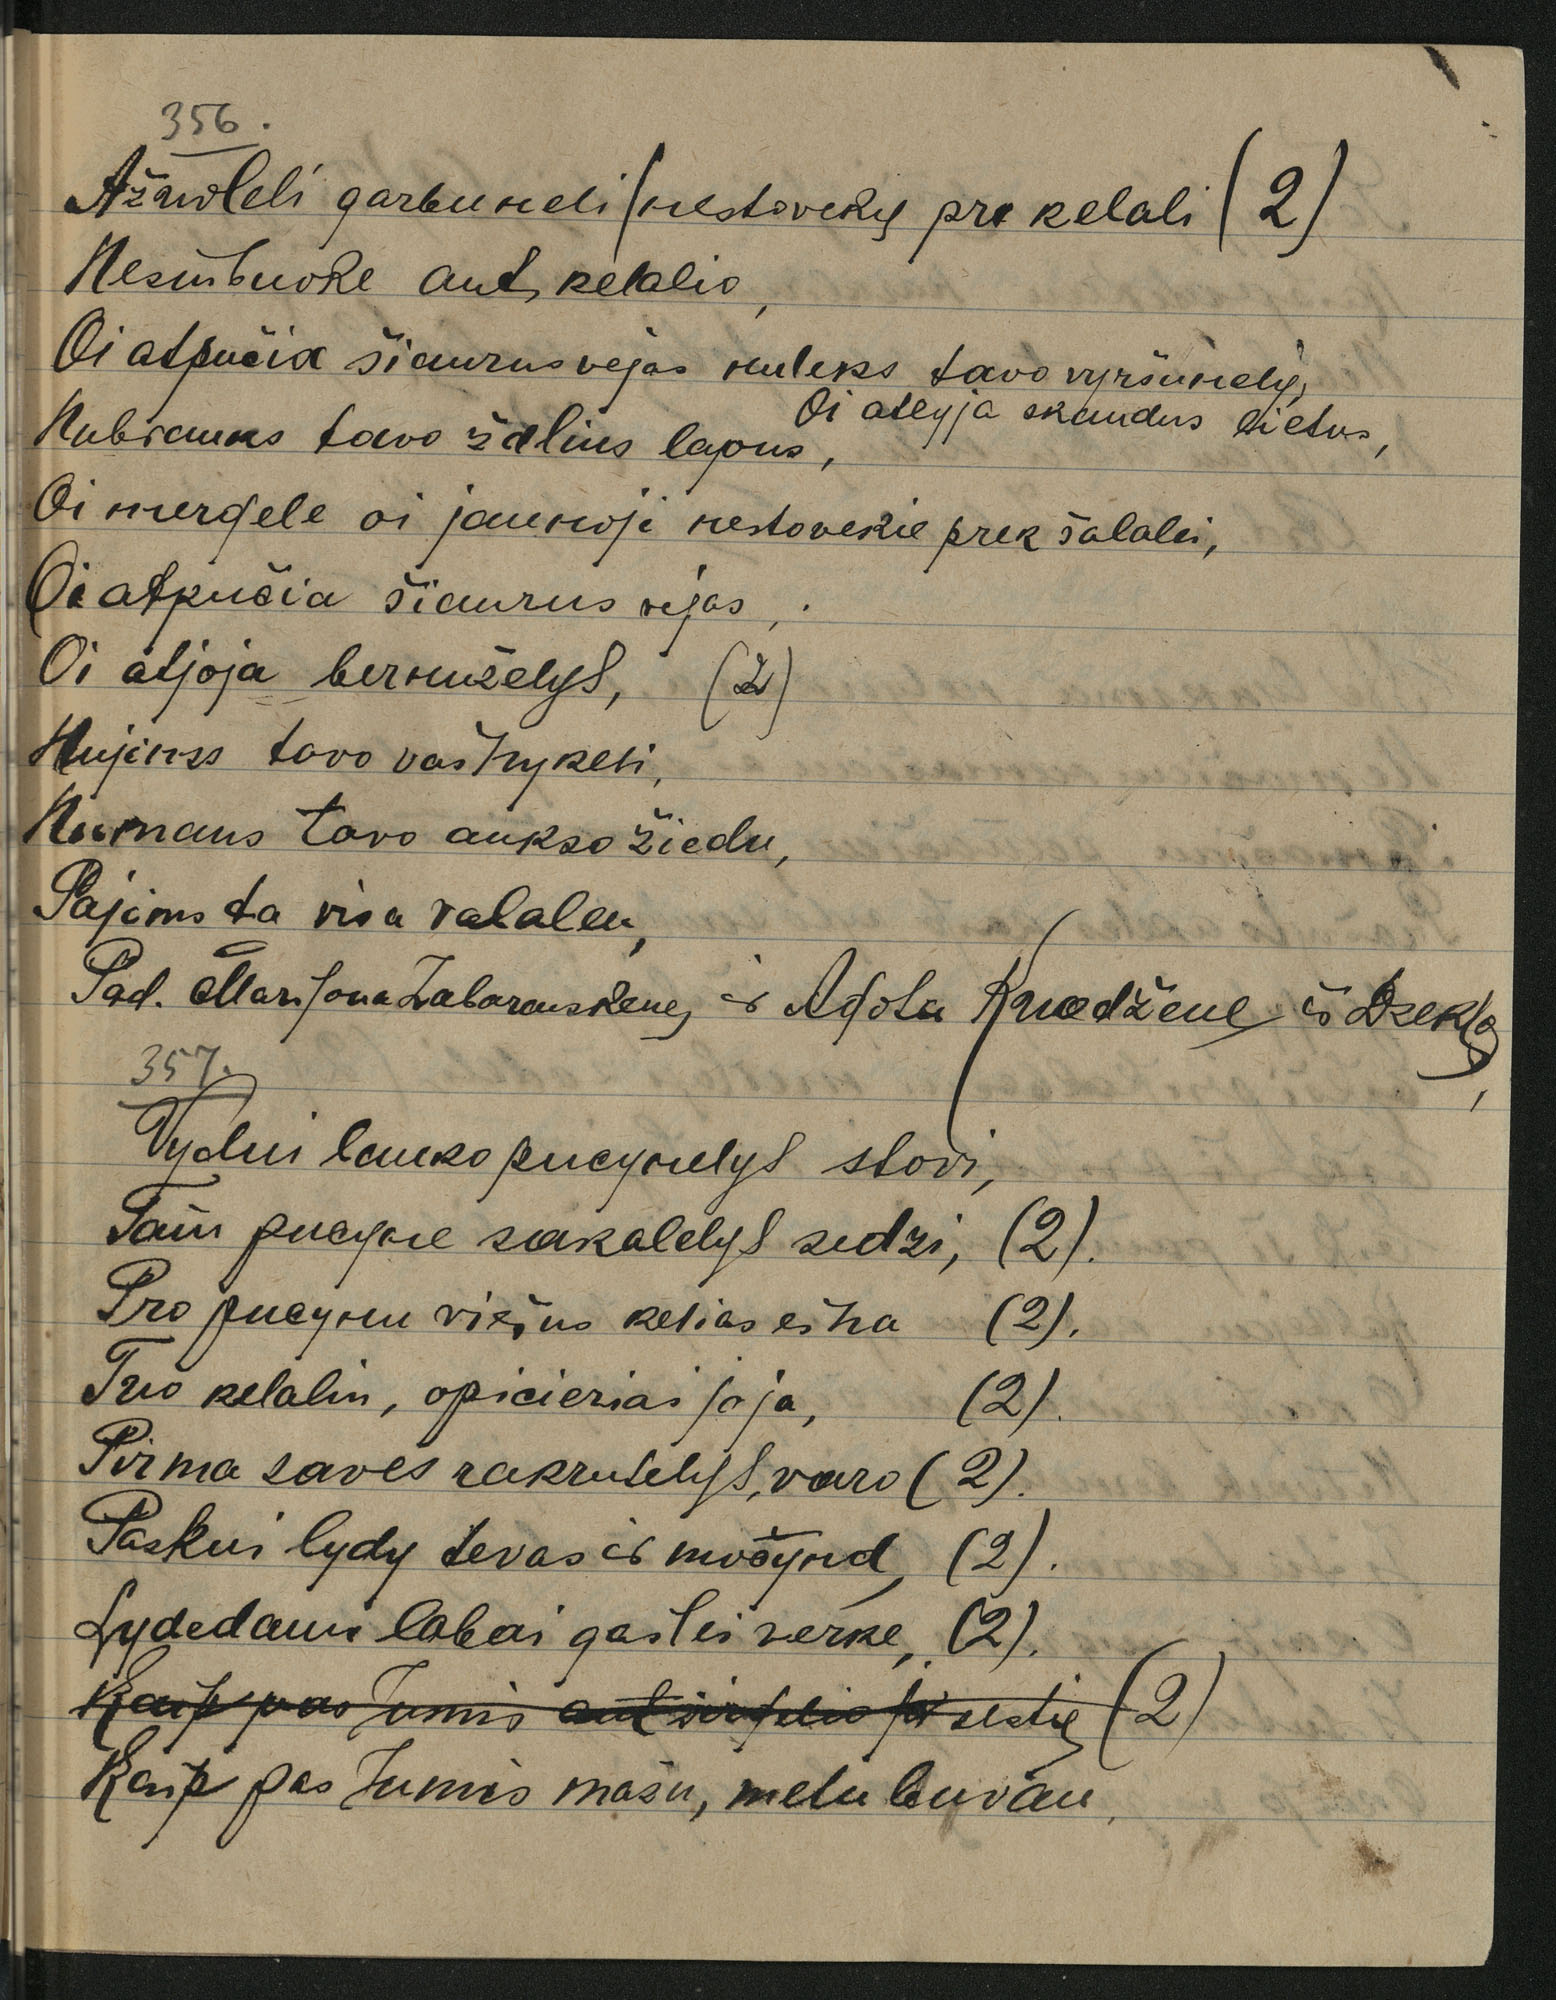 356.
Ažuoleli garbuneli / nestovekių pre kelali (2)
Nesiubuoke ant kelalio,
Oi atpučia šiaurus vejas nuleks tavo vyršunelį,
Oi atlyja skaudus lietus,
Nubrauks tavo žalius lapus,
Oi mergele oi jaunoji nestovekie prek šalalei,
Oi atpučia šiaurus vejas,.
Oi atjoja bernuželys, (2)
Nujims tavo vainykeli,
Numaus tavo aukso žiedu,
Pajems ta visa valaleu,
Pad. Marijona Zabarauskenę ir Agota
357.
Vydui lauko pucynelys stovi,
Tam pucyne sakalelys sedzi, (2).
Pro pucynu viešus kelias eina (2).
Tuo kelaliu, opicieriai joja, (2).
Pirma saves rakrutelys, varo (2).
Paskui lydy tevas ir močyna, (2).
Lydedami labai gailei verke, (2).
Kaip pas Jumis ant (2)
Kaip pas Jumis mažu, metu buvau,